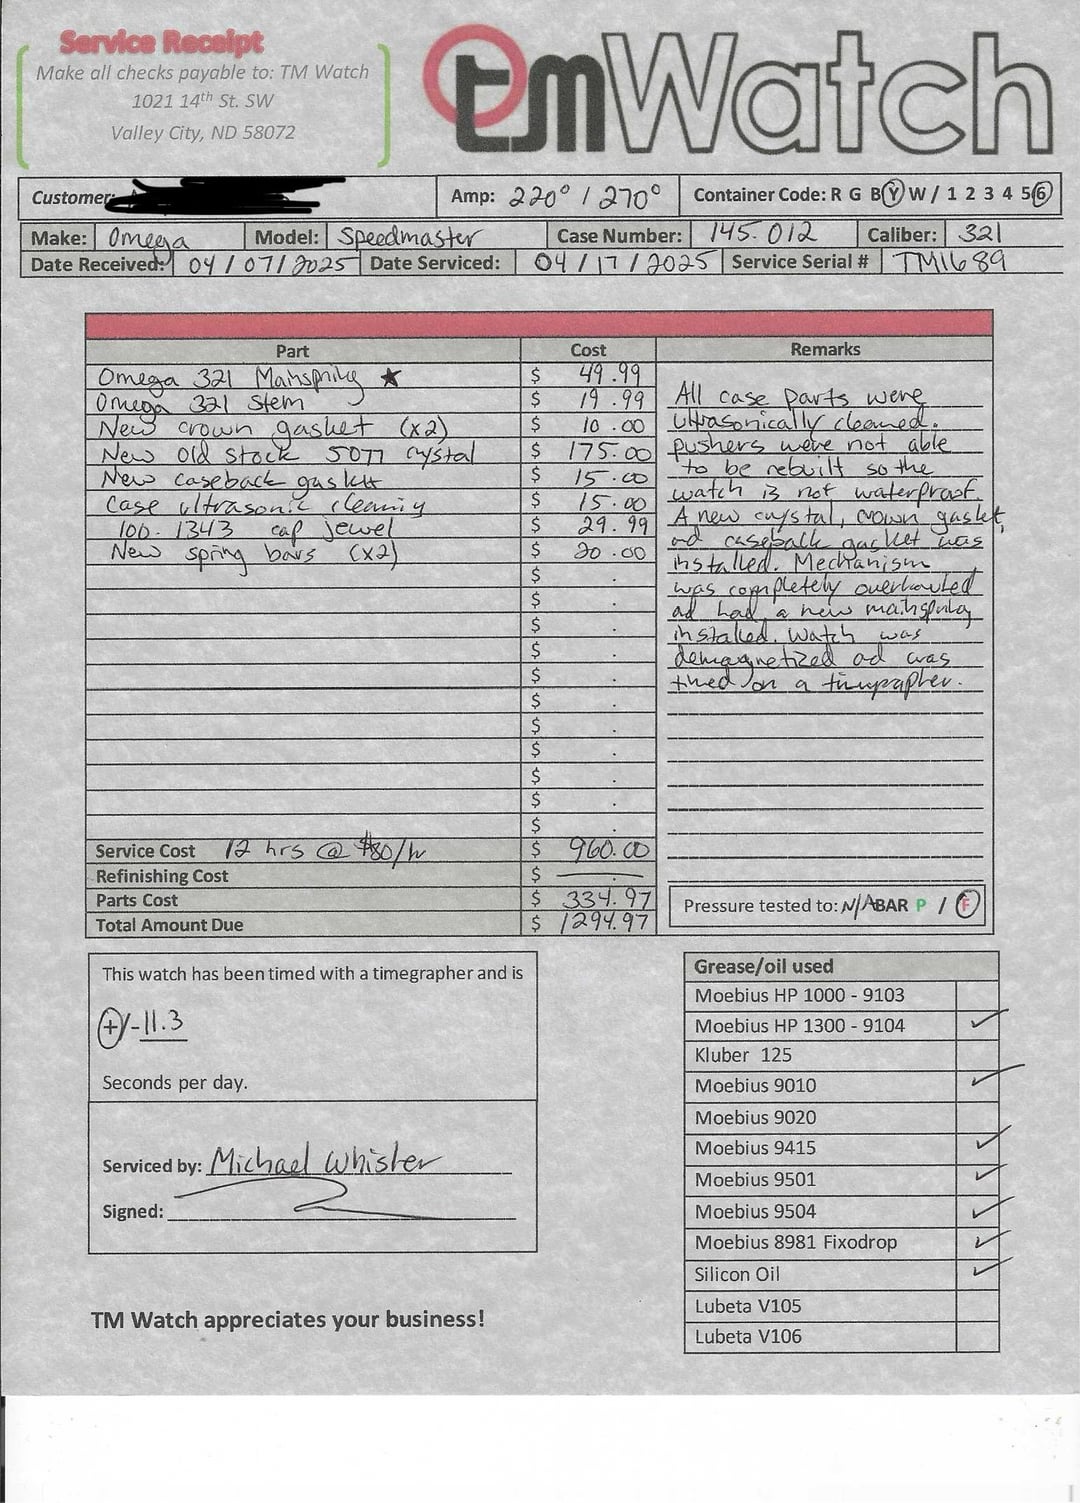 Service Receipt
Make all checks payable to: TM Watch
1021 14th St. SW
Valley City, ND 58072
tmWatch
Customer:
Amp: 220° / 270°
Container Code: R G B Y W / 1 2 3 4 5 6
Make: Omega
Model: Speedmaster
Case Number: 145.012
Caliber: 321
Date Received: 04/07/2025
Date Serviced: 04/17/2025
Service Serial # TM1689
Part
Cost
Remarks
Omega 321 Mainspring ★ $ 49.99
Omega 321 Stem $ 19.99
New crown gasket (x2) $ 10.00
New Old Stock 5077 crystal $ 175.00
New caseback gasket $ 15.00
Case ultrasonic cleaning $ 15.00
100.1343 cap jewel $ 29.99
New spring bars (x2) $ 20.00
$ .
$ .
$ .
$ .
$ .
$ .
$ .
$ .
$ .
$ .
$ .
Service Cost 12 hrs @ $80/hr $ 960.00
Refinishing Cost $
Parts Cost $ 334.97
Total Amount Due $ 1294.97
All case parts were
ultrasonically cleaned.
pushers were not able
to be rebuilt so the
watch is not waterproof.
A new crystal, crown gasket,
and caseback gasket was
installed. Mechanism
was completely overhauled
ad had a new mainspring
installed. Watch was
demagnetized ad was
timed on a timegrapher.
Pressure tested to: N/A BAR P / F
This watch has been timed with a timegrapher and is
+/- 11.3
Seconds per day.
Serviced by: Michael Whisler
Signed:
Grease/oil used
Moebius HP 1000 - 9103
Moebius HP 1300 - 9104 ✓
Kluber 125
Moebius 9010 ✓
Moebius 9020
Moebius 9415 ✓
Moebius 9501 ✓
Moebius 9504 ✓
Moebius 8981 Fixodrop ✓
Silicon Oil ✓
Lubeta V105
Lubeta V106
TM Watch appreciates your business!